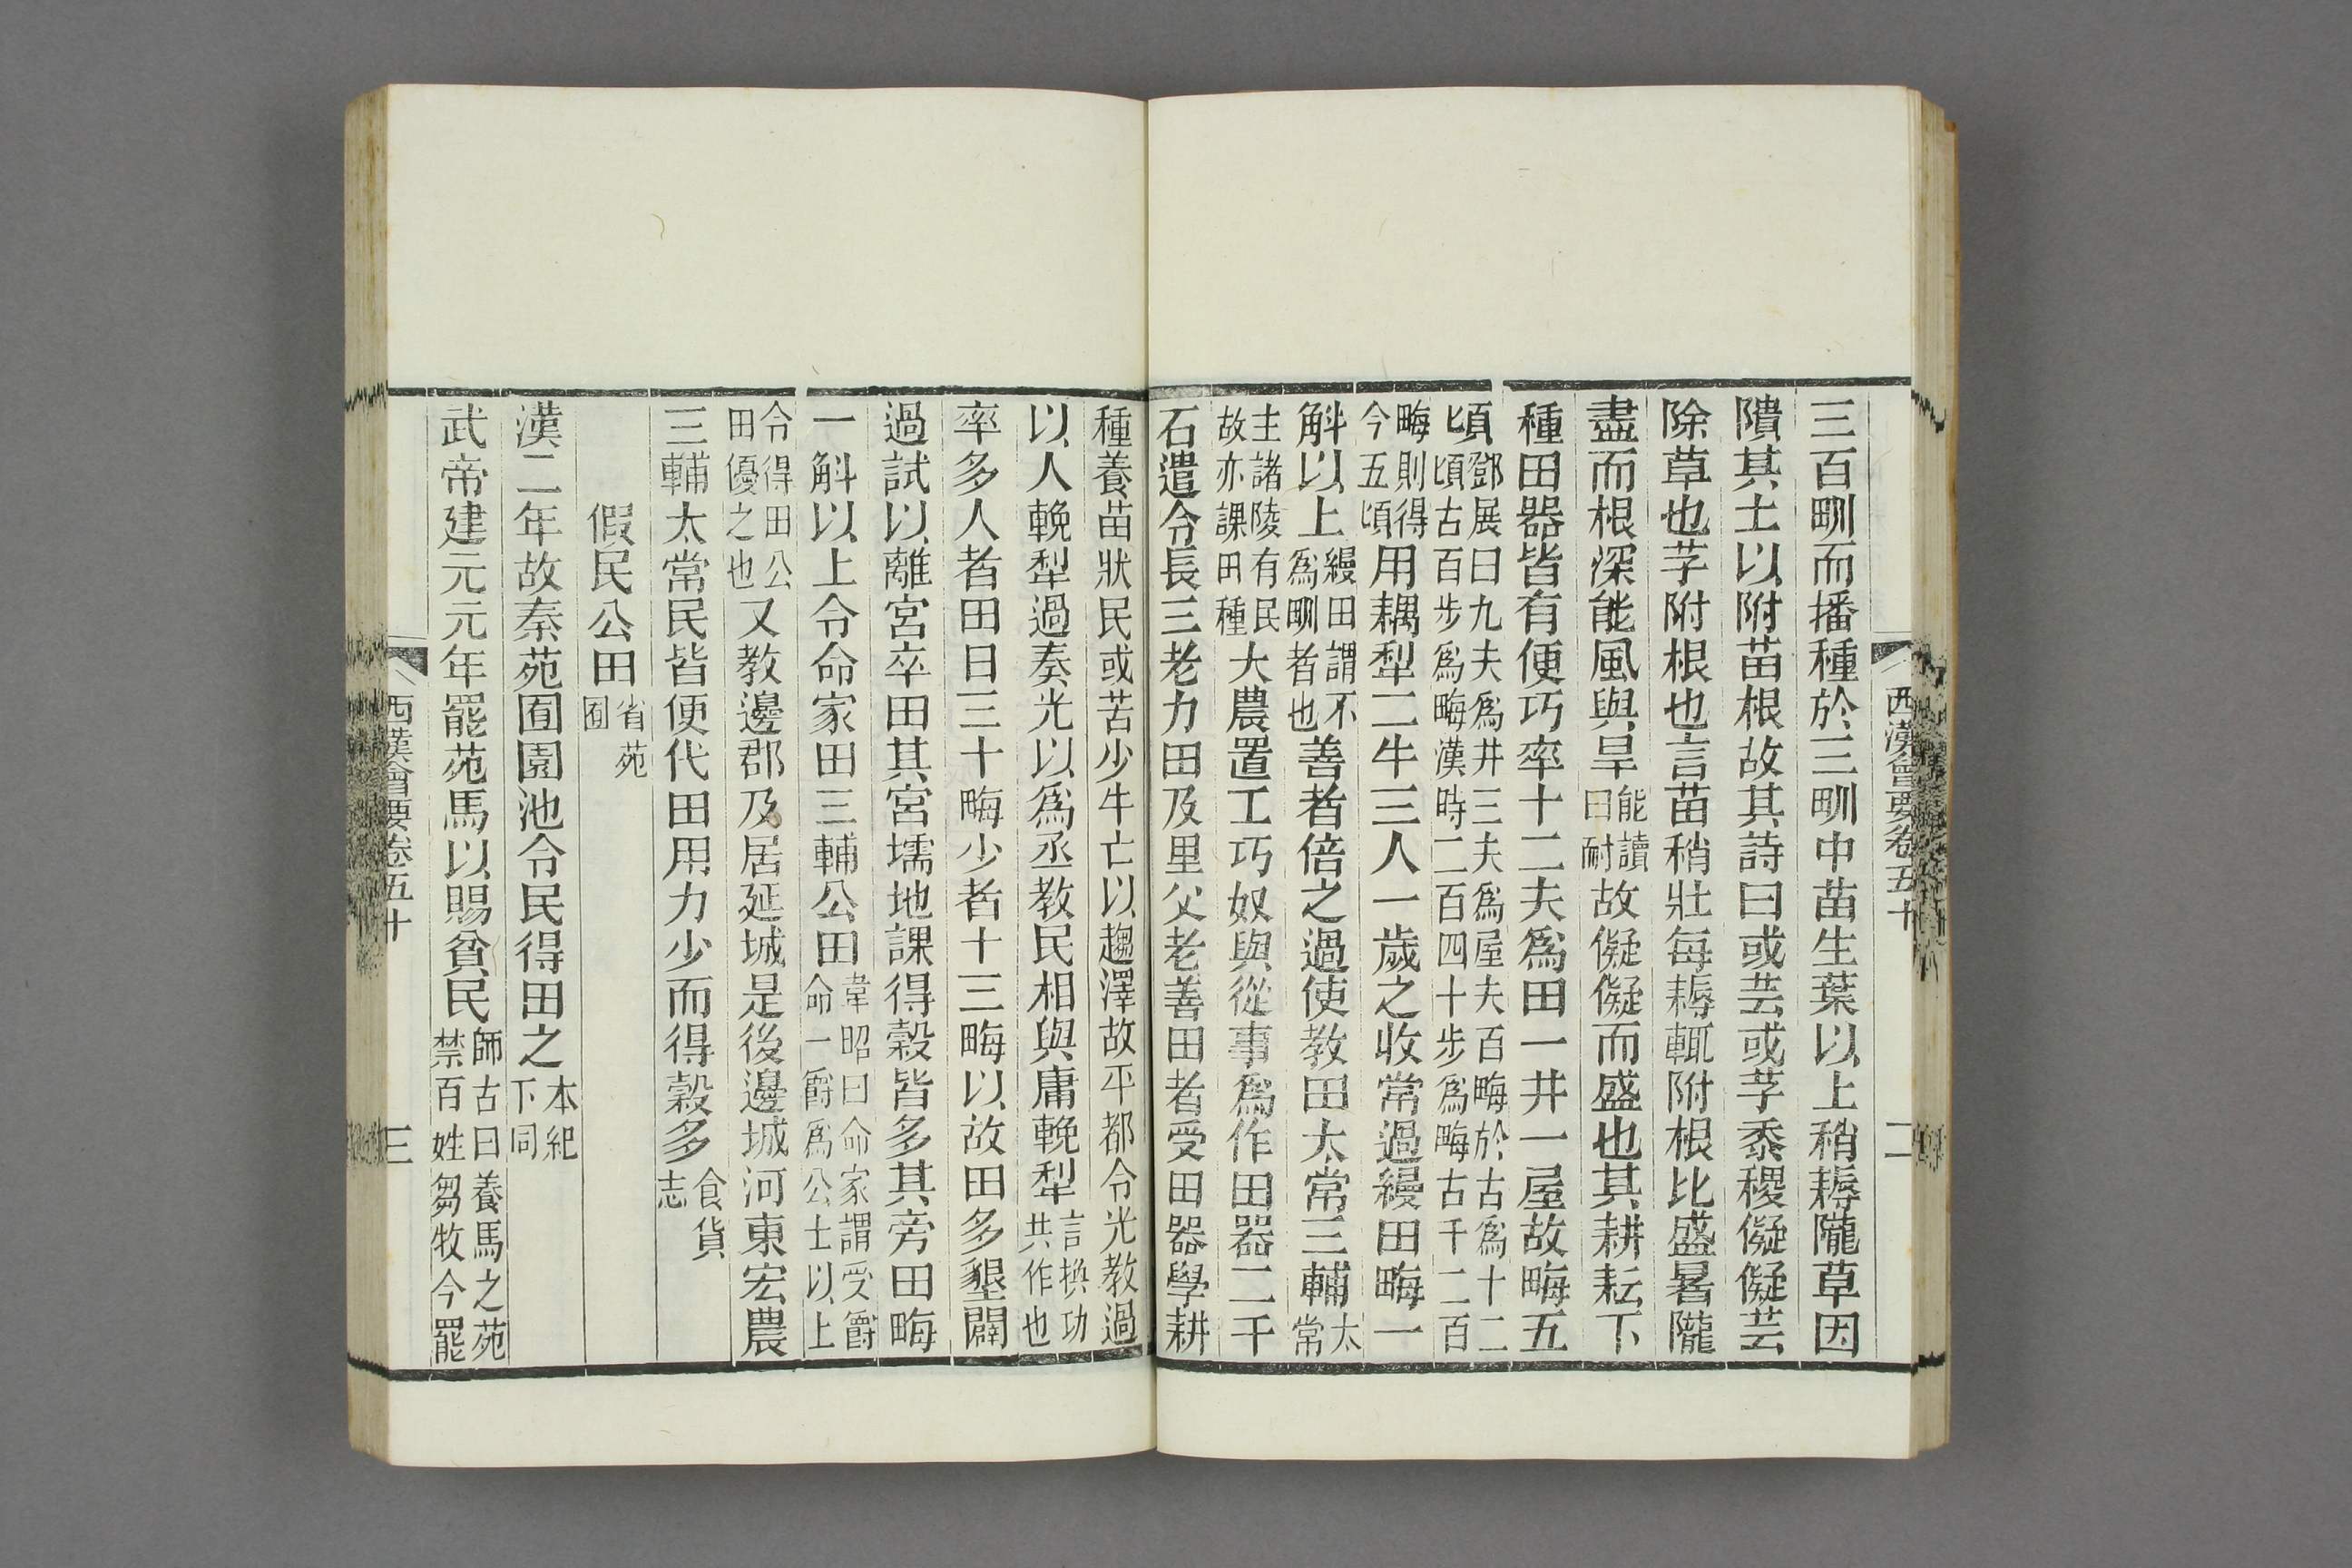 西漢會要卷五十
二
三百甽而播種於三甽中苗生葉以上稍耨隴草因
隤其土以附苗根故其詩曰或芸或芓黍稷儗儗芸
除草也芓附根也言苗稍壯每耨輒附根比盛暑隴
盡而根深能風與旱能讀曰耐故儗儗而盛也其耕耘下
種田器皆有便巧率十二夫爲田一井一屋故畮五
頃鄧展曰九夫爲井三夫爲屋夫百畮於古爲十二頃古百步爲畮漢時二百四十步爲畮古千二百
畮則得今五頃用耦犁二牛三人一歲之收常過縵田畮一
斛以上縵田謂不爲甽者也善者倍之過使教田太常三輔太常
主諸陵有民故亦課田種大農置工巧奴與從事爲作田器二千
石遣令長三老力田及里父老善田者受田器學耕
種養苗狀民或苦少牛亡以趨澤故平都令光教過
以人輓犁過奏光以爲丞教民相與庸輓犁言換功共作也
率多人者田日三十畮少者十三畮以故田多墾闢
過試以離宮卒田其宮壖地課得穀皆多其旁田畮
一斛以上令命家田三輔公田韋昭曰命家謂受爵命一爵爲公士以上
令得田公田優之也又教邊郡及居延城是後邊城河東宏農
三輔太常民皆便代田用力少而得穀多食貨志
假民公田省苑囿
漢二年故秦苑囿園池令民得田之本紀下同
武帝建元元年罷苑馬以賜貧民師古曰養馬之苑禁百姓芻牧今罷
西漢會要卷五十
三